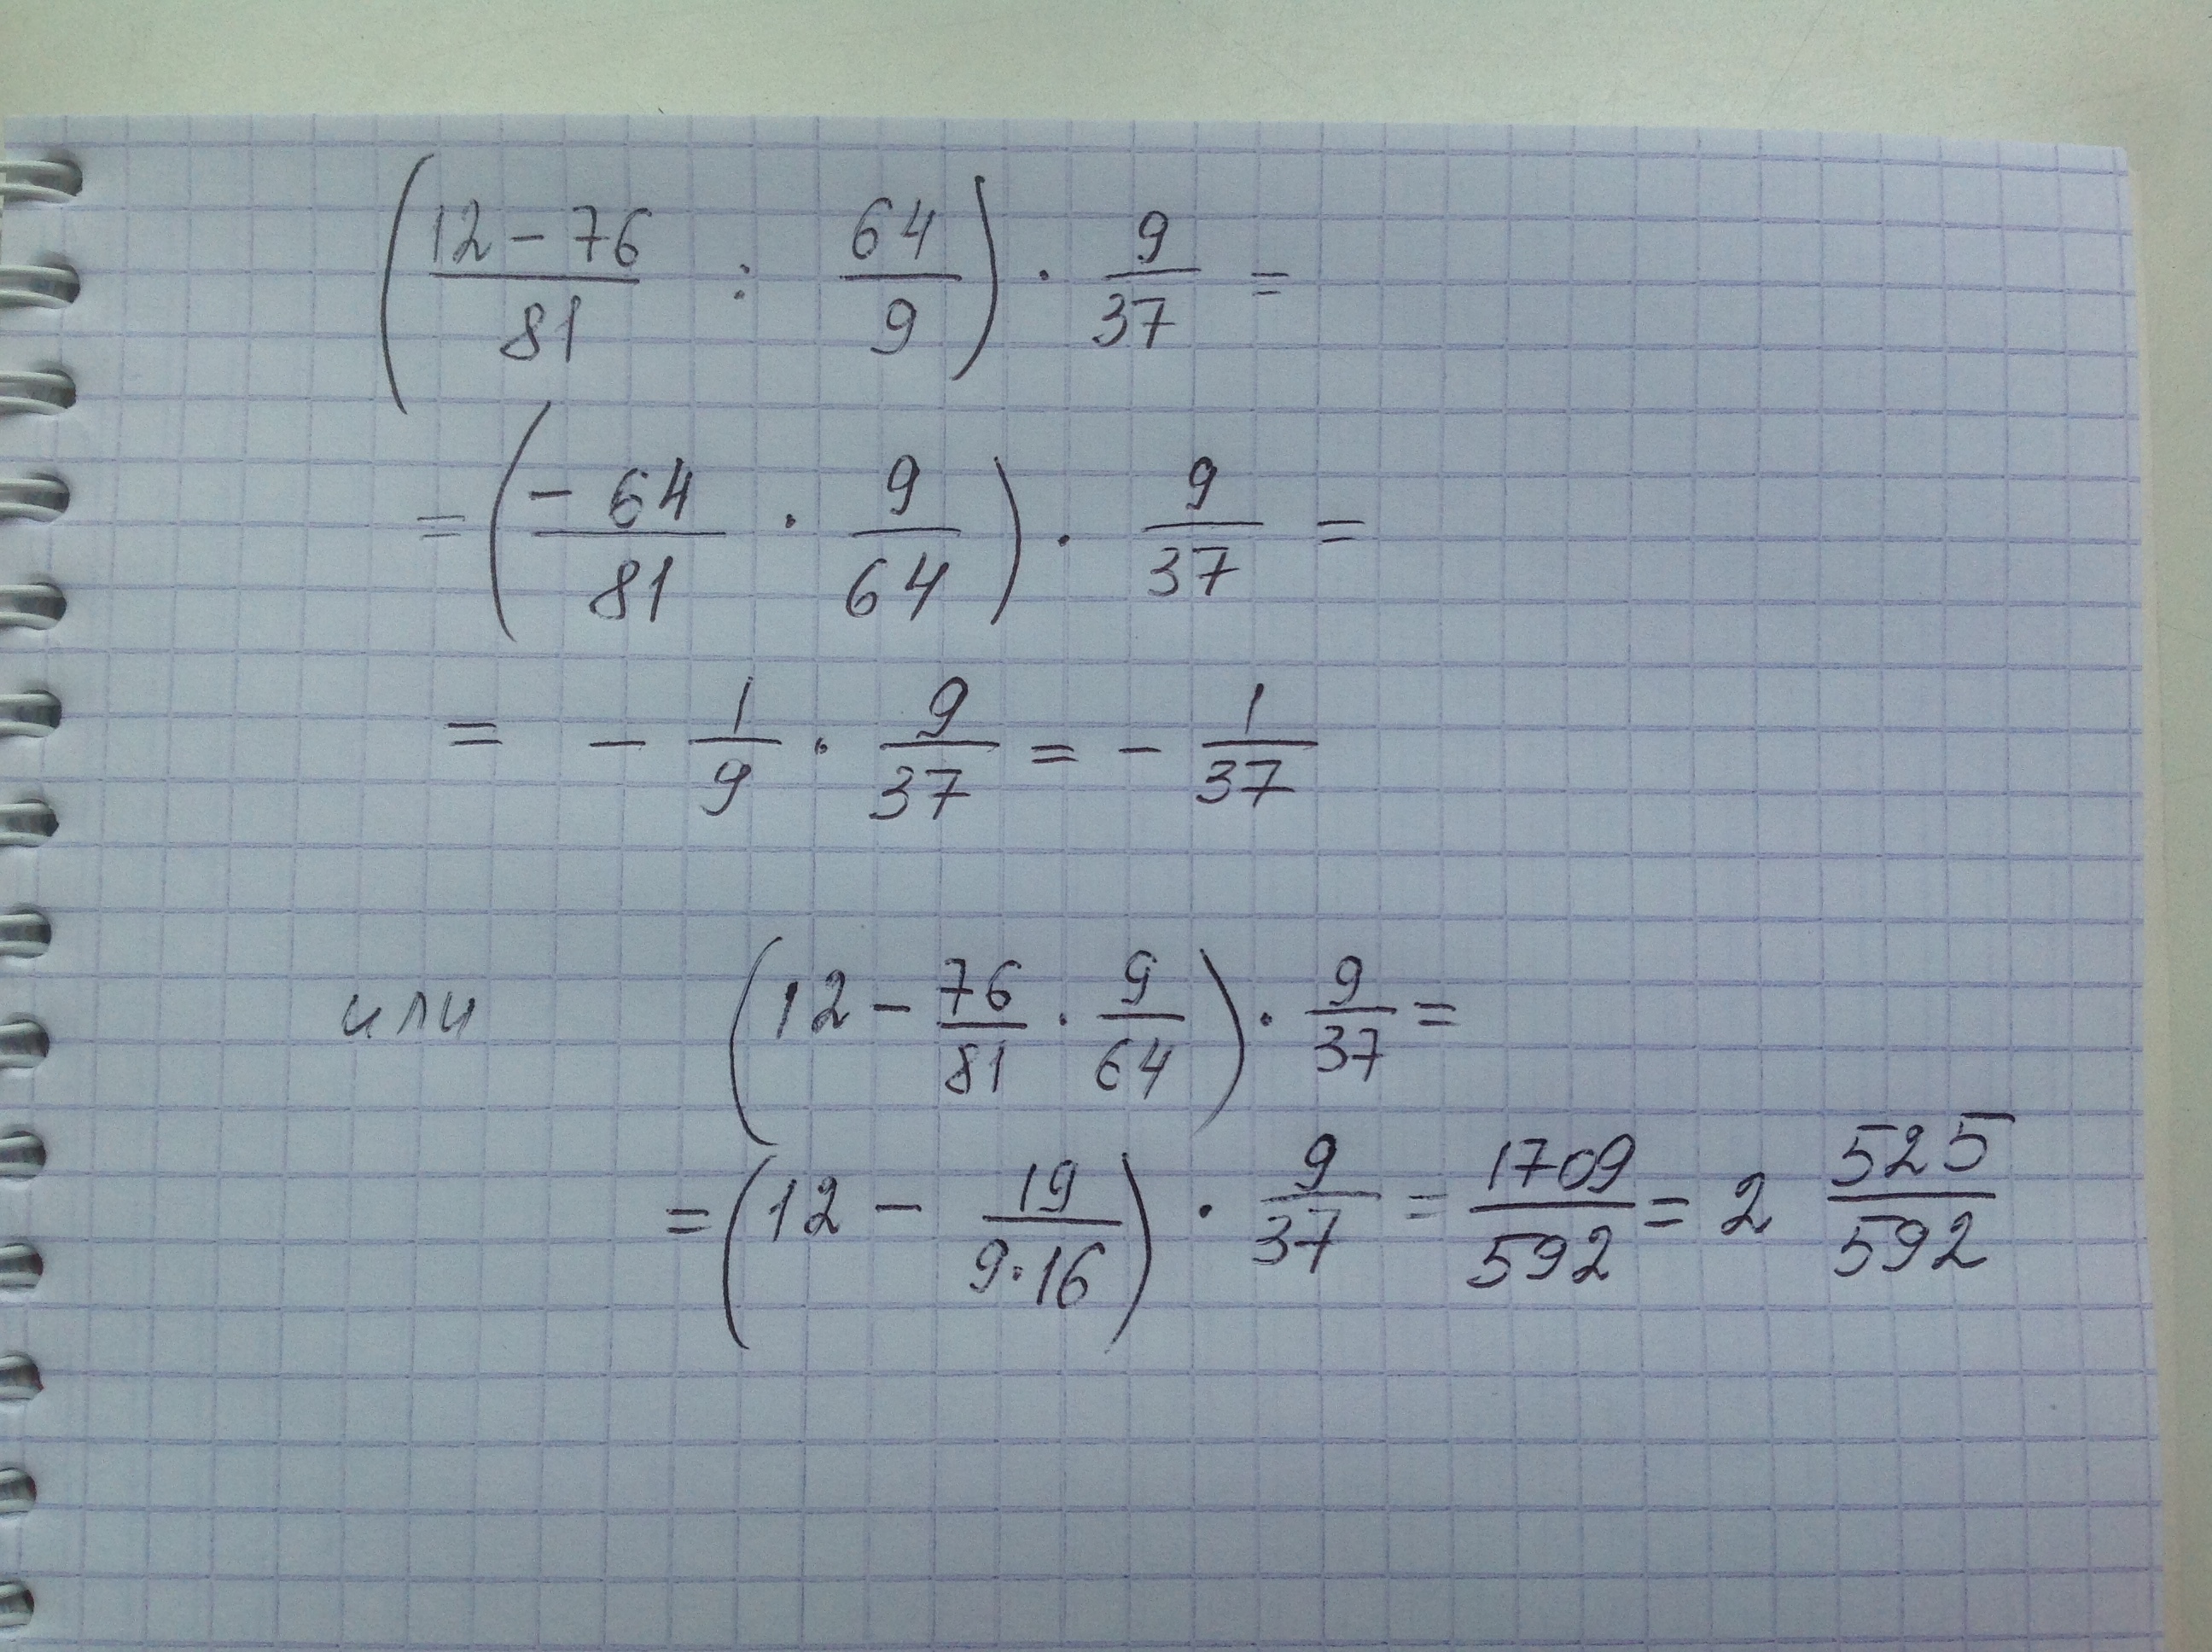 ( (12 - 76)/81 : 64/9 ) · 9/37 =
= ( (- 64)/81 · 9/64 ) · 9/37 =
= - 1/9 · 9/37 = - 1/37
или ( 12 - 76/81 · 9/64 ) · 9/37 =
= ( 12 - 19/(9·16) ) · 9/37 = 1709/592 = 2 525/592